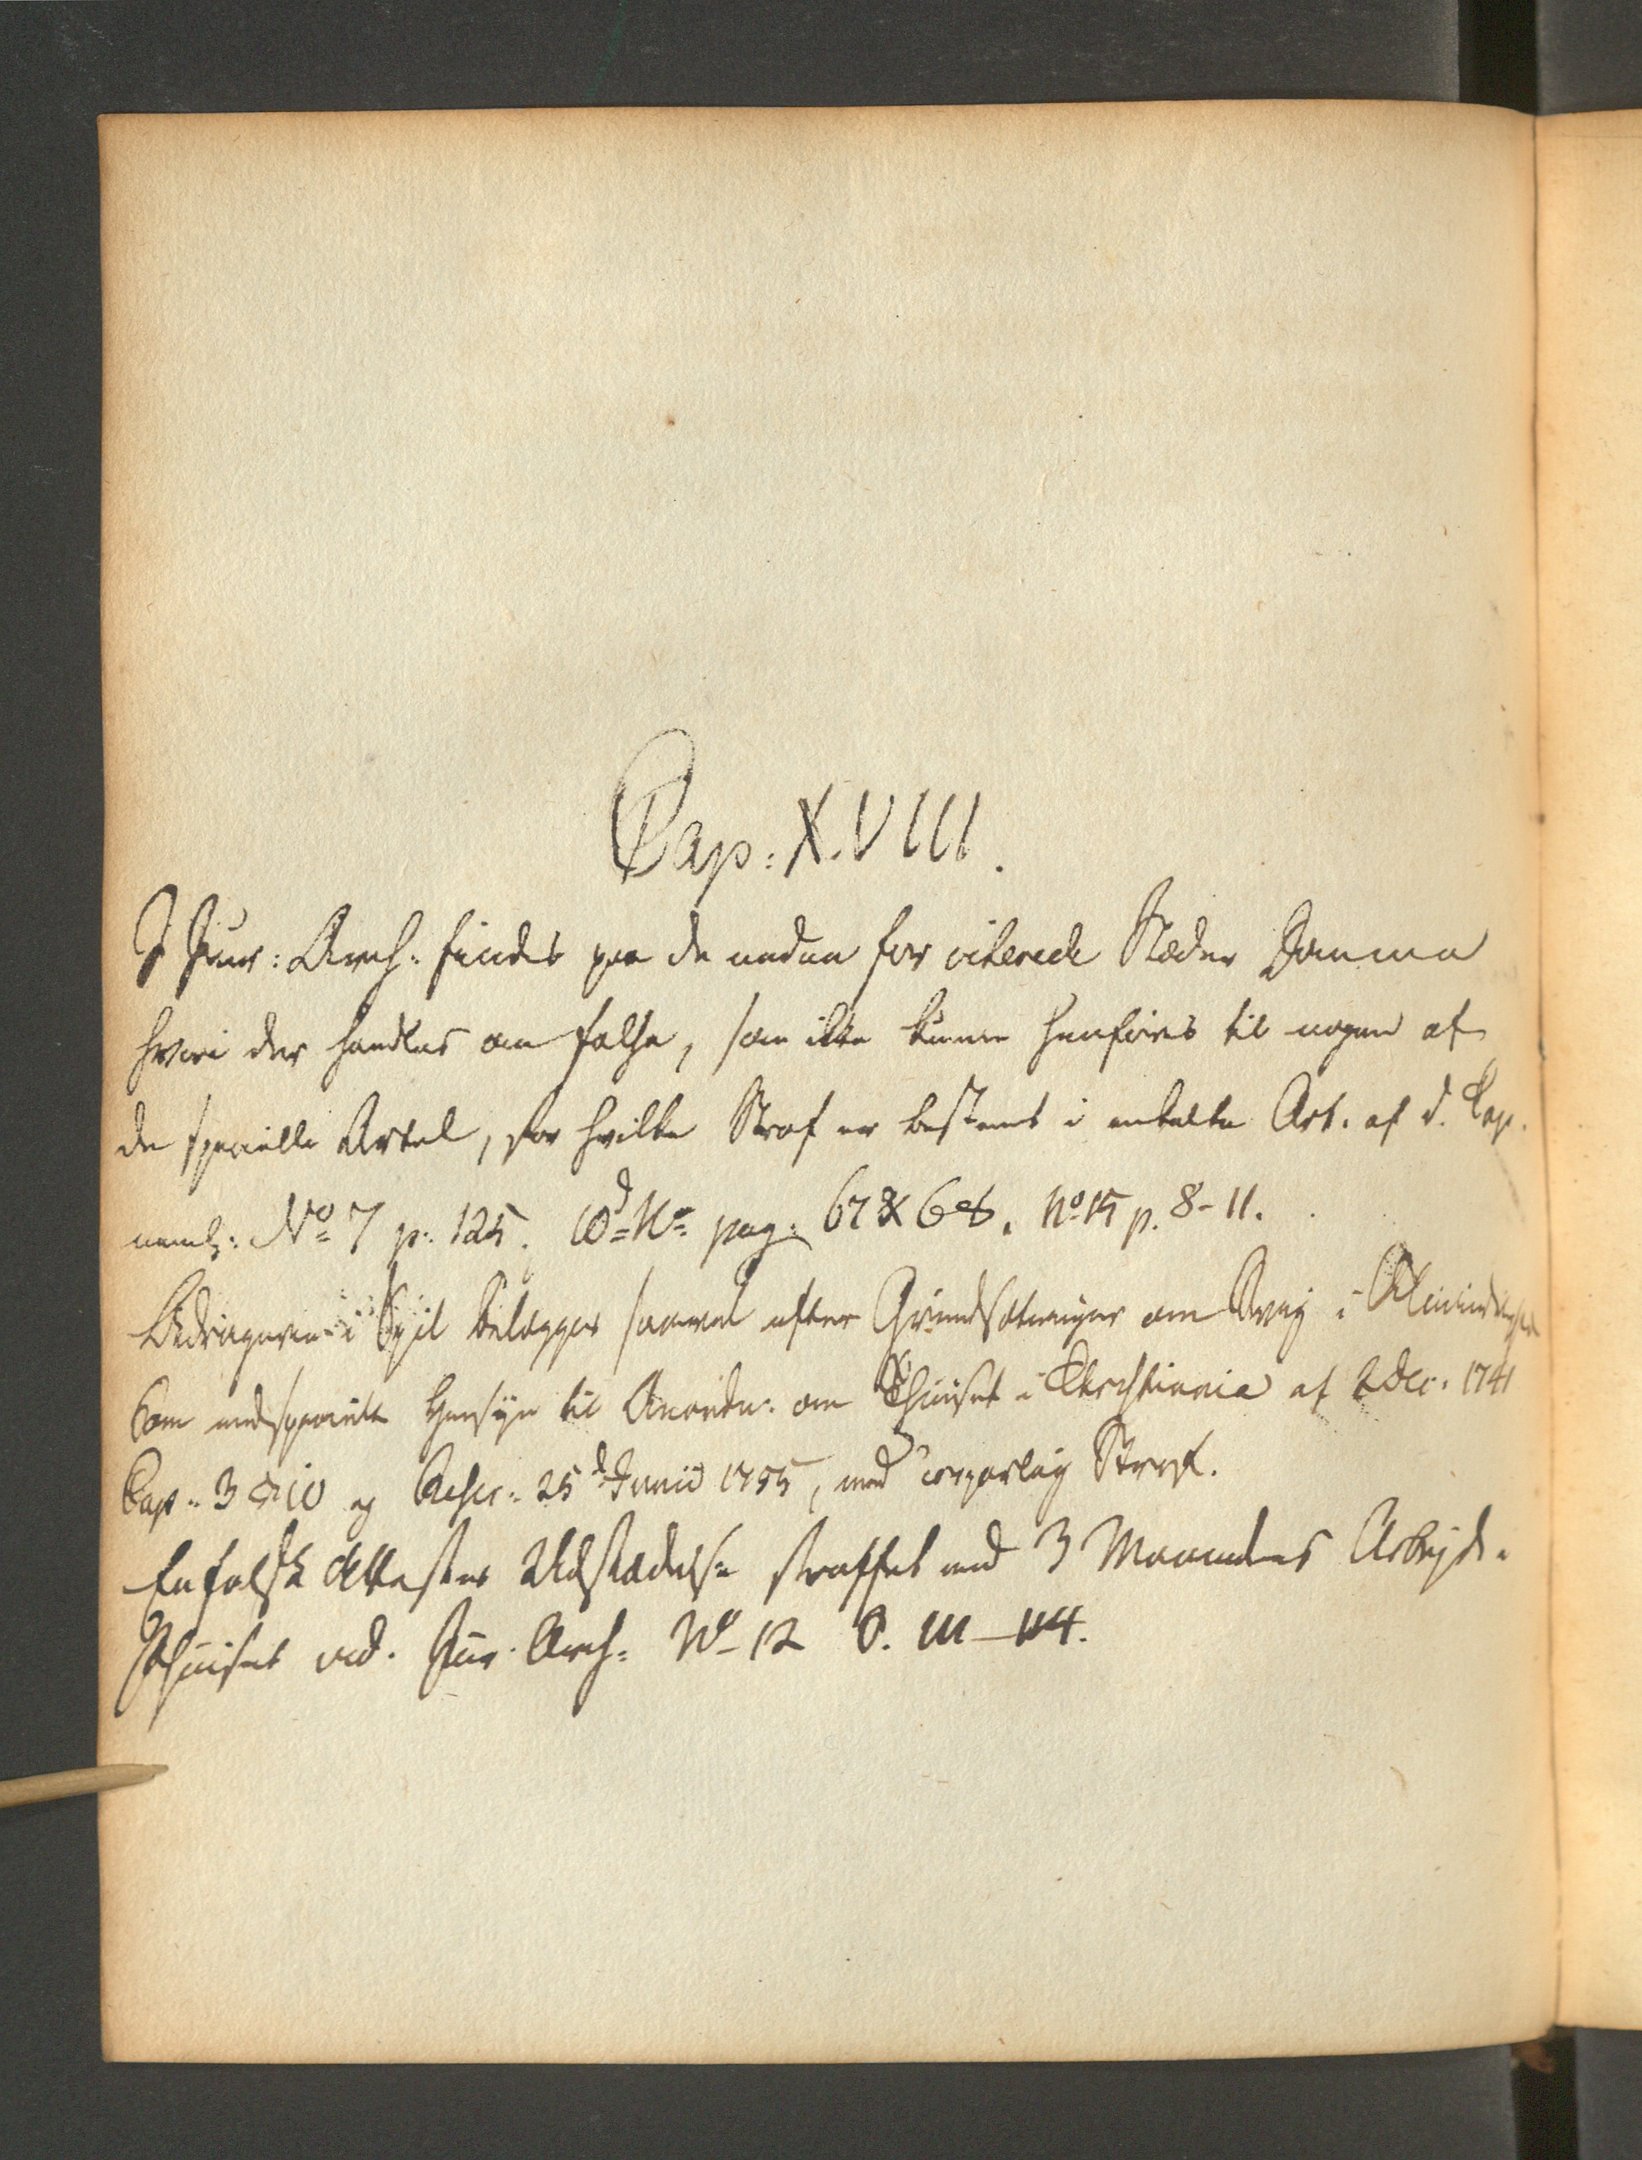 Cap: X.VIII.
I Jur: Arch: findes paa de neden for citerede Stæder Domme
hvori der handles om falsk, som ikke kunne henføres til nogen af
de specielle Arter, for hvilke Straf er bestemt i enkelte Art. af d. Cap.
neml: No 7 p. 125. pag. 67 & 68. No 15 p. 8-11.
Bedrageri i Spil belægges saavel efter Grundsætninger om Svig i Almindelighed
som med specielle Hensyn til Anordn: om Tugthuuset i Christiania af 2 Dec. 1741
Cap. 3 § 10 og Rescr. 25 Junii 1755, med corporlig Straf.
En falsk Attestes Udstædelse straffet med 3 Maaneders Arbejde
vid. Jur. Arch: No 12 S. 111-114.